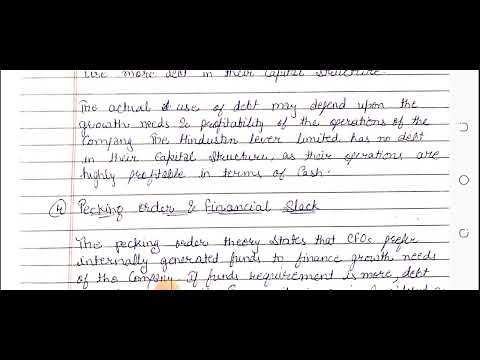 use more debt in their Capital Structure.
The actual use of debt may depend upon the
growth needs & profitability of the operations of the
Company. The Hindustan Lever limited has no debt
in their Capital Structure, as their operations are
highly profitable in terms of Cash.
④ Pecking order & Financial Slack
The pecking order theory states that CFOs prefer
internally generated funds to finance growth needs
of the Company. If funds requirement is more, debt